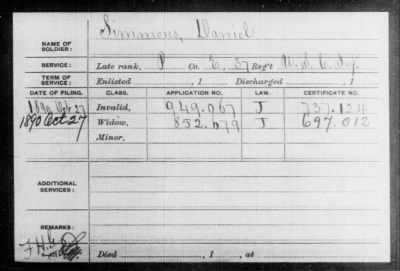 Simmons, Daniel
NAME OF SOLDIER:
SERVICE: Late rank, P Co. E, 37 Reg't U.S.C. Inf.
TERM OF SERVICE: Enlisted , 1 Discharged , 1
DATE OF FILING. CLASS. APPLICATION NO. LAW. CERTIFICATE NO.
1890 Oct 27 Invalid, 949.067 J 737.124
1890 Oct 27 Widow, 852.679 J 697.012
Minor,
ADDITIONAL SERVICES:
REMARKS:
Died , 1 , at